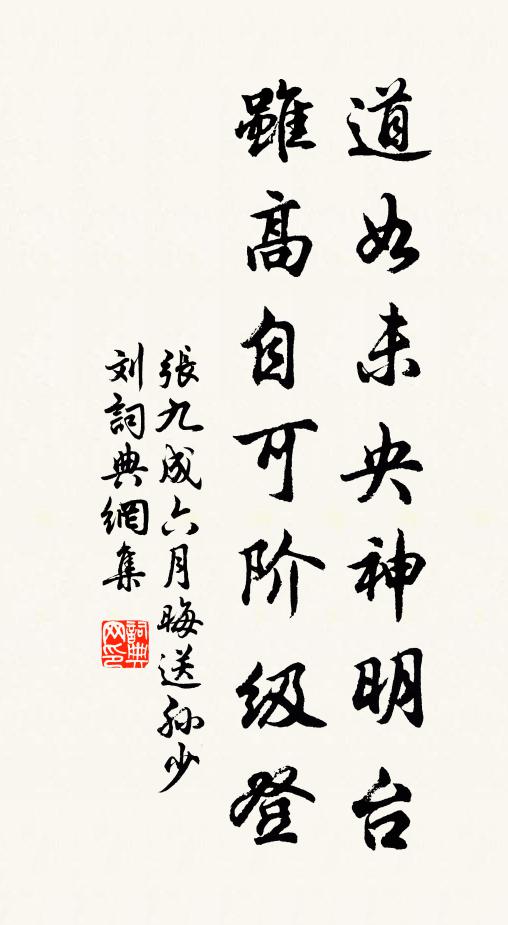 道如未央神明台
雖高自可阶级登
張九成六月晦送孙少
刘詞典網集
詞典网印